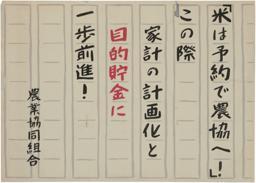 「米は予約で農協へ!」
この際
家計の計画化と
目的貯金に
一歩前進!
農業協同組合